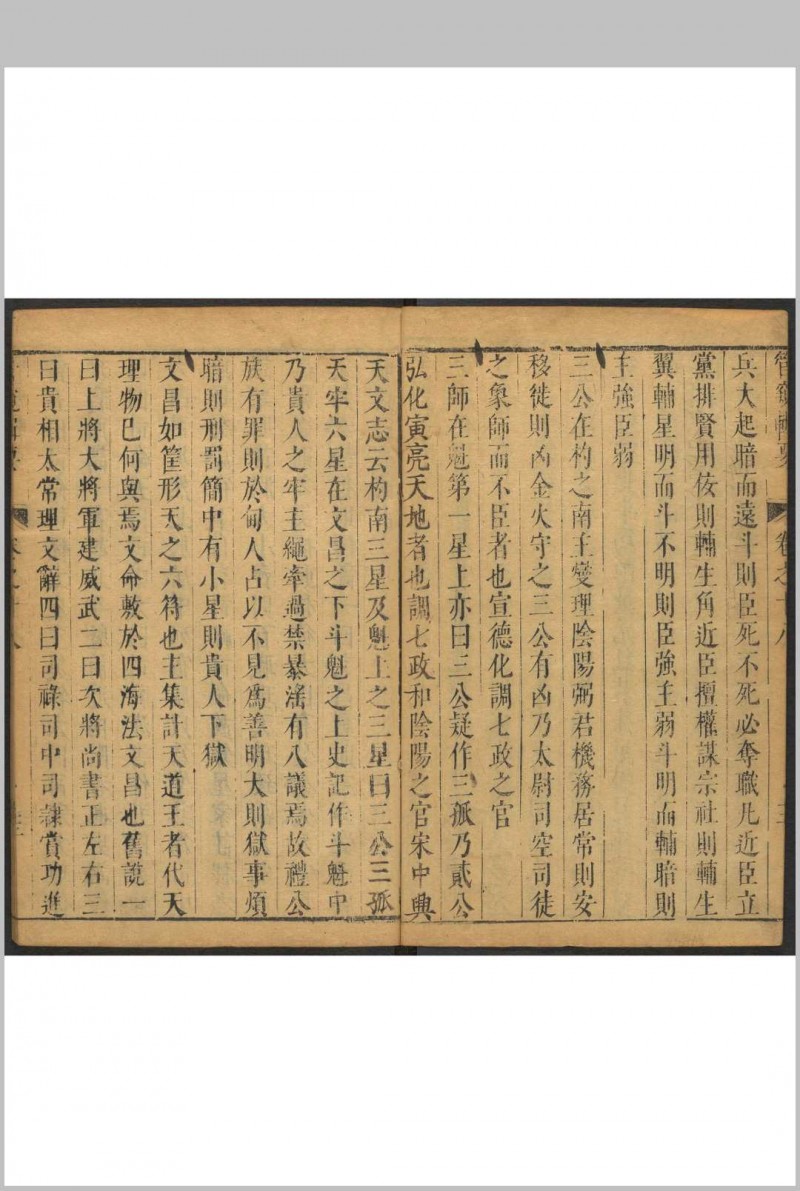 管窺輯要
卷之十八
兵大起暗而遠斗則臣死不死必奪職凡近臣立
黨排賢用佞則輔生角近臣擅權謀宗社則輔生
翼輔星明而斗不明則臣強主弱斗明而輔暗則
主強臣弱
三公在杓之南主變理陰陽弼君機務居常則安
移徙則凶金火守之三公有凶乃太尉司空司徒
之象師而不臣者也宣德化調七政之官
三師在魁第一星上亦曰三公疑作三孤乃貳公
弘化寅亮天地者也調七政和陰陽之官宋中興
天文志云杓南三星及魁上之三星曰三公三孤
天牢六星在文昌之下斗魁之上史記作斗魁中
乃貴人之牢主繩牽過禁暴淫有八議焉故禮公
族有罪則於甸人占以不見爲善明大則獄事煩
暗則刑罰簡中有小星則貴人下獄
文昌如筐形天之六符也主集計天道王者代天
理物已何與焉文命敷於四海法文昌也舊說一
曰上將大將軍建威武二曰次將尚書正左右三
曰貴相太常理文辭四曰司祿司中司隸賞功進